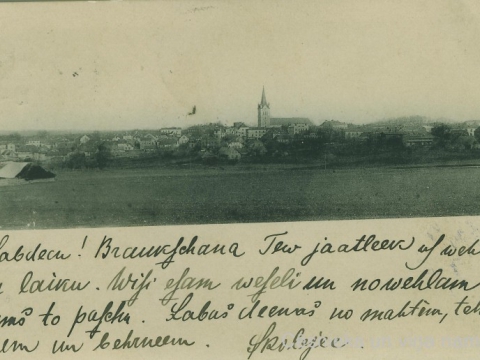 Labdeen! Braukschana Tew jaatleek us weh
laiku. Wisi esam weseli un nowehlam
to paschu. Labas deenas no mahtem, teh
un behrneem. Skolnjees